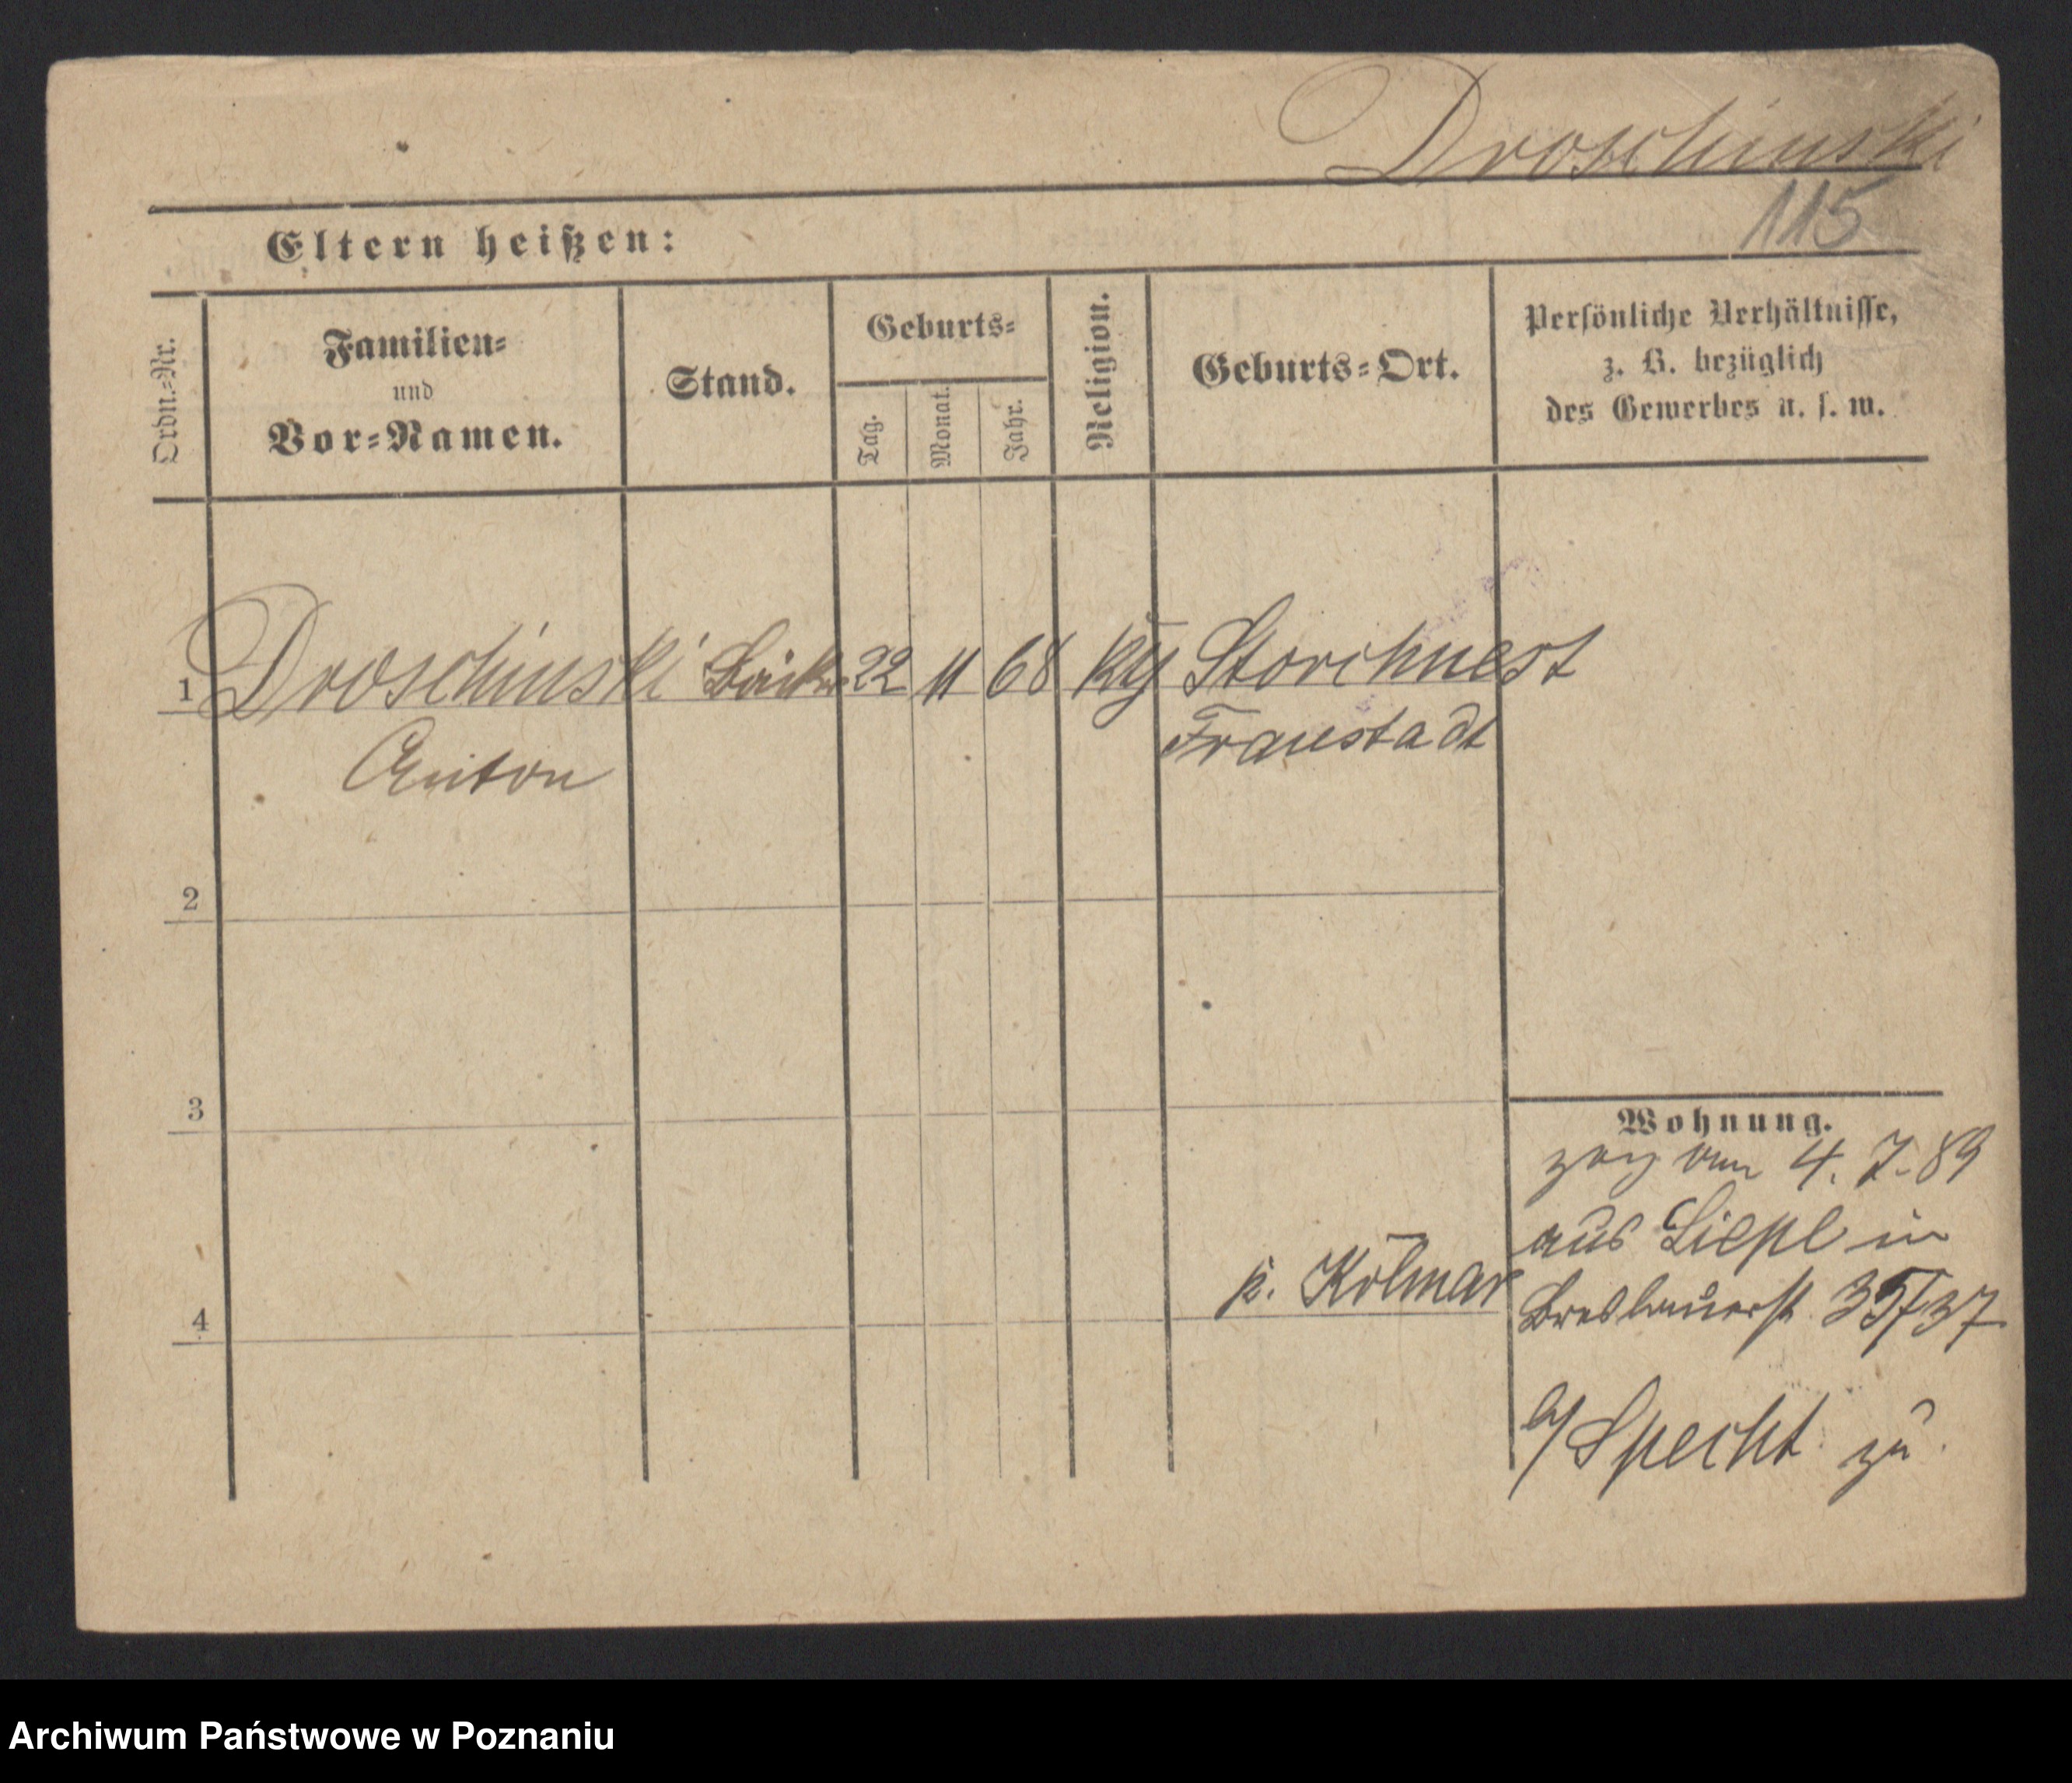 Droschinski
115
Eltern heißen:
Ordn.=Nr.
Familien=
und
Vor=Namen.
Stand.
Geburts=
Tag.
Monat.
Jahr.
Religion.
Geburts=Ort.
Persönliche Verhältnisse,
z. B. bezüglich
des Gewerbes u. s. w.
1 Droschinski Bäcker 22 11 68 Storchnest
Anton Fraustadt
2
3
Wohnung.
zog am 4. 7. 89
aus in
4 k. Kolmar Breslauerst. 35/37
b/Specht zu.
Archiwum Państwowe w Poznaniu